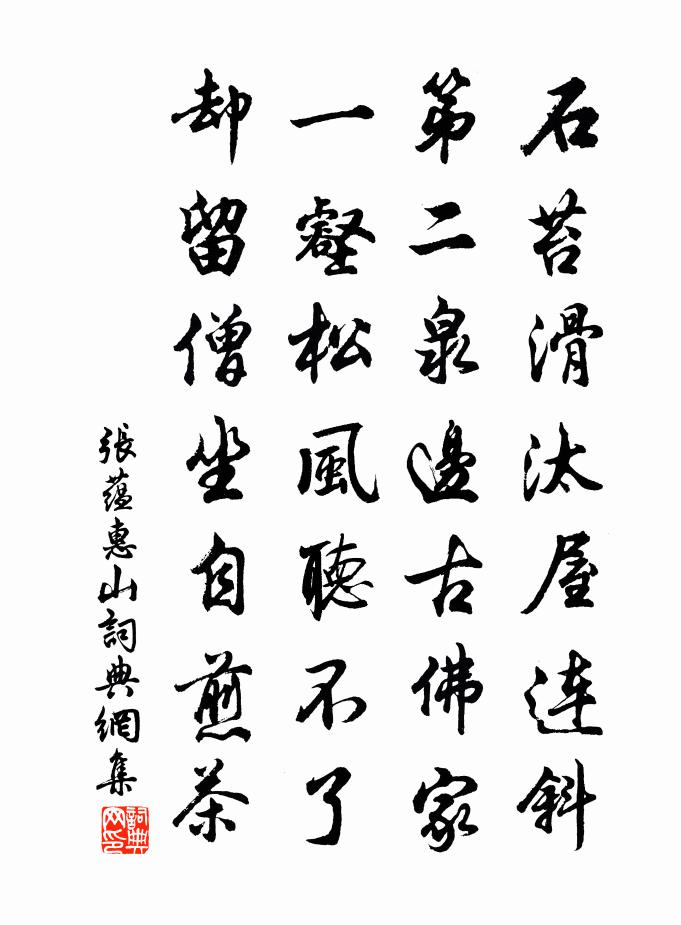 石苔滑汰屋連斜
第二泉邊古佛家
一壑松風聽不了
却留僧坐自煎茶
張蘊惠山詞典網集
詞典網印